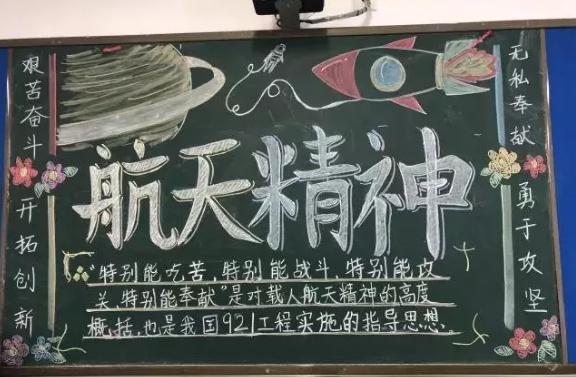 艰苦奋斗
开拓创新
航天精神
"特别能吃苦，特别能战斗，特别能攻
关，特别能奉献"是对载人航天精神的高度
概括，也是我国921工程实施的指导思想。
无私奉献
勇于攻坚